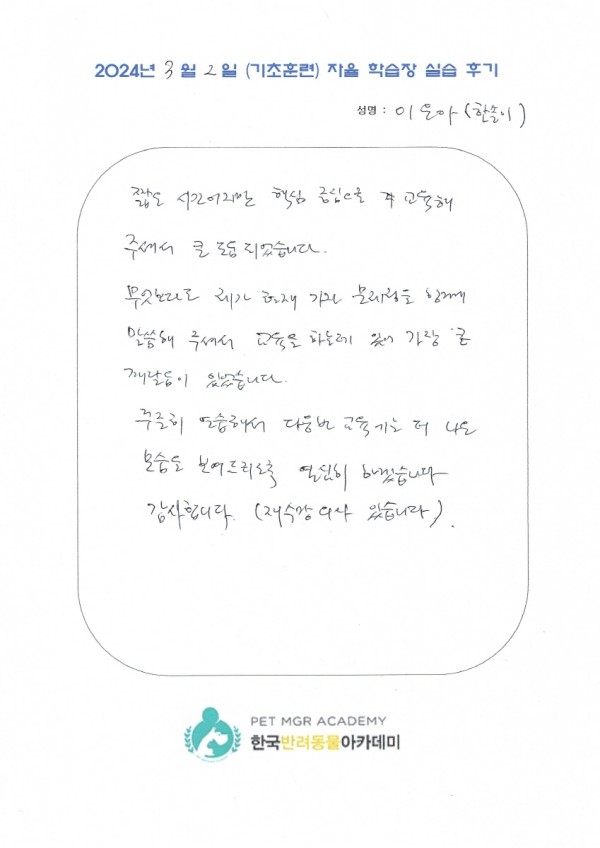 2024년 3월 2일 (기초훈련) 자율 학습장 실습 후기
성명 : 이은아 (한솔이)
짧은 시간이지만 핵심 중심으로 교육해
주셔서 큰 도움 되었습니다.
무엇보다도 제가 현재 가진 문제점을 함께
말씀해 주셔서 교육을 하는데 있어 가장 큰
깨달음이 있었습니다.
꾸준히 연습해서 다음번 교육기는 더 나은
모습을 보여드리도록 열심히 하겠습니다
감사합니다. (재수강 의사 있습니다).
PET MGR ACADEMY
한국반려동물아카데미